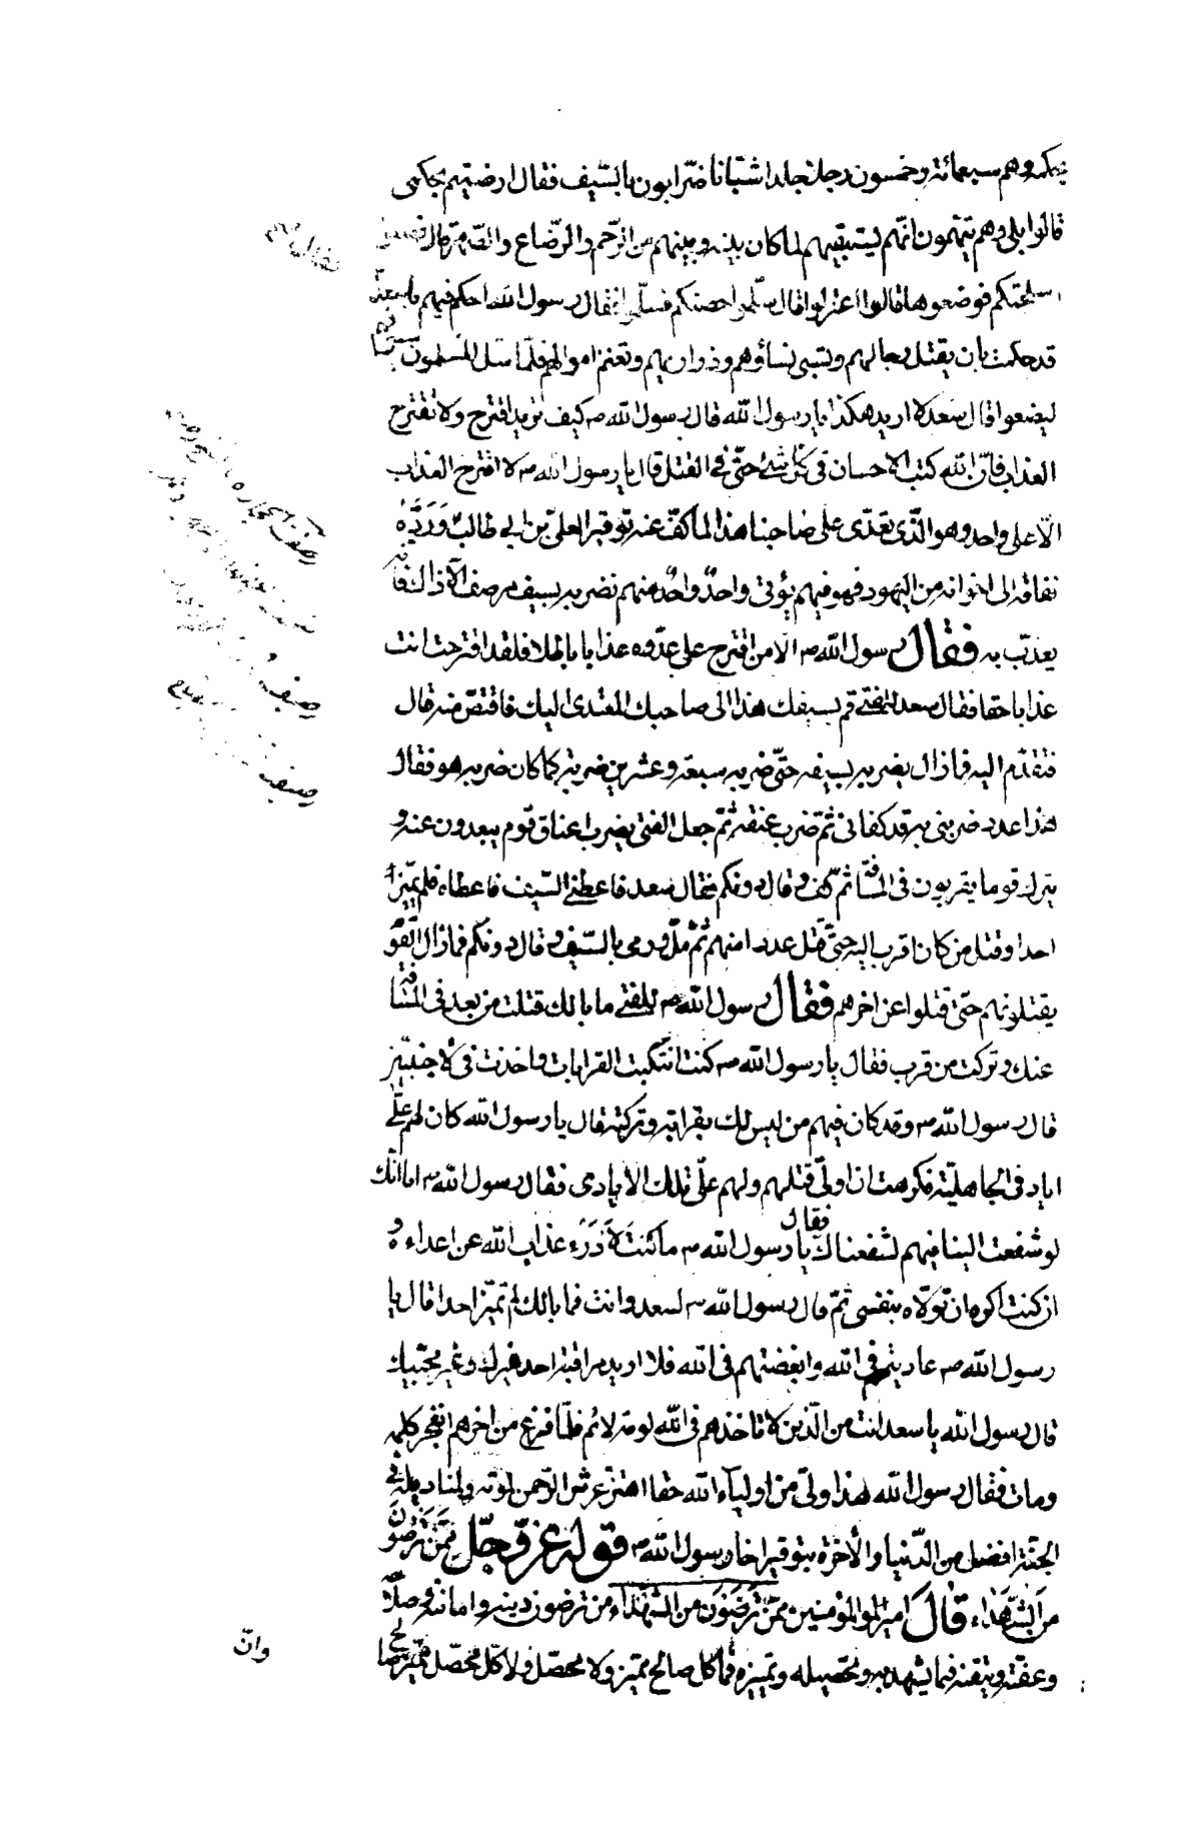 بحكمه وهم سبعمائة وخمسون رجلا جلدا شبانا ضرابون بالسيف فقال ارضيتم بحكمى
قالوا بلى وهم يتهمون انهم ليستبقيهم لما كان بينه وبينهم من الرحم والرضاع والصهر قال فضعوا
اسلحتكم فوضعوها قال اعتزلوا فاعتزلوا قال سلموا حصنكم فسلموا فقال رسول الله احكم فيهم يا سعد
قد حكمت بان يقتل رجالهم وتسبى نساؤهم وذراريهم وتغنم اموالهم فلما سل المسلمون سيوفهم
ليضعوا قال سعد لا اريد هكذا يا رسول الله قال رسول الله ص كيف تريد اقترح ولا تقترح
العذاب فان الله كتب الاحسان فى كل شئ حتى فى القتل قال يا رسول الله ص لا اقترح العذاب
الا على واحد وهو الذى تعدى على صاحبنا هذا لما كف عنه توقيرا لعلى بن ابى طالب وَرَدَّهُ
نفاقه الى اخوانه من اليهود فهو فيهم يؤتى واحد واحد منهم نضربه بسيف مرهف الا ذاك فانه
يعذب به فقال رسول الله ص الا من اقترح على عدوه عذابا باطلا فلقد اقترحت انت
عذابا حقا فقال سعد للفتى قم بسيفك هذا الى صاحبك المتعدى اليك فاقتص منه قال
فتقدم اليه فما زال يضربه بسيفه حتى ضربه سبعة وعشرين ضربة كما كان ضربه هو فقال
هذا عدد ضربنى به قد كفانى ثم ضرب عنقه ثم جعل الفتى يضرب اعناق قوم يبعدون عنه و
يترك قوما يقربون فى المسافة ثم كف وقال دونكم فقال سعد فاعطنى السيف فاعطاه فلم يميز
احدا وقتل من كان اقرب اليه حتى قتل عددا منهم ثم مل ورمى بالسيف وقال دونكم فما زال القوم
يقتلونهم حتى قتلوا عن اخرهم فقال رسول الله ص للفتى ما بالك قتلت من بعد فى المسافة
عنك وتركت من قرب فقال يا رسول الله ص كنت اتنكب القرابات واخذت فى الاجنبيين
قال رسول الله ص وقد كان فيهم من ليس لك بقرابة وتركته قال يا رسول الله كان لهم على
اياد فى الجاهلية فكرهت ان اولى قتلهم ولهم على تلك الايادى فقال رسول الله ص اما انك
لو شفعت الينا فيهم لشفعناك فقال يا رسول الله ص ما كنت لادرء عذاب الله عن اعدائه و
ان كنت اكره ان تولاه بنفسى ثم قال رسول الله ص لسعد وانت فما بالك لم تميز احدا قال يا
رسول الله ص عاديتهم فى الله وابغضتهم فى الله فلا اريد مراقبة احد غيرك وغير محبيك
قال رسول الله يا سعد انت من الذين لا تاخذهم فى الله لومة لائم فلما فرغ من اخرهم انفجر كلمه
ومات فقال رسول الله هذا ولى من اولياء الله حقا اهتز عرش الرحمن لموته ولمناديله فى
الجنة افضل من الدنيا والاخرة بتوقيره اخا رسول الله ص قوله عز وجل مِمَّنْ تَرْضَوْنَ
مِنَ الشُّهَداءِ قال امير المؤمنين ممن ترضون من الشهداء من ترضون دينه وامانته وصلاحه
وعفته وتيقنه فيما يشهد به وتحصيله وتميزه فما كل صالح مميز ولا محصل ولا كل محصل مميز صالح
وان